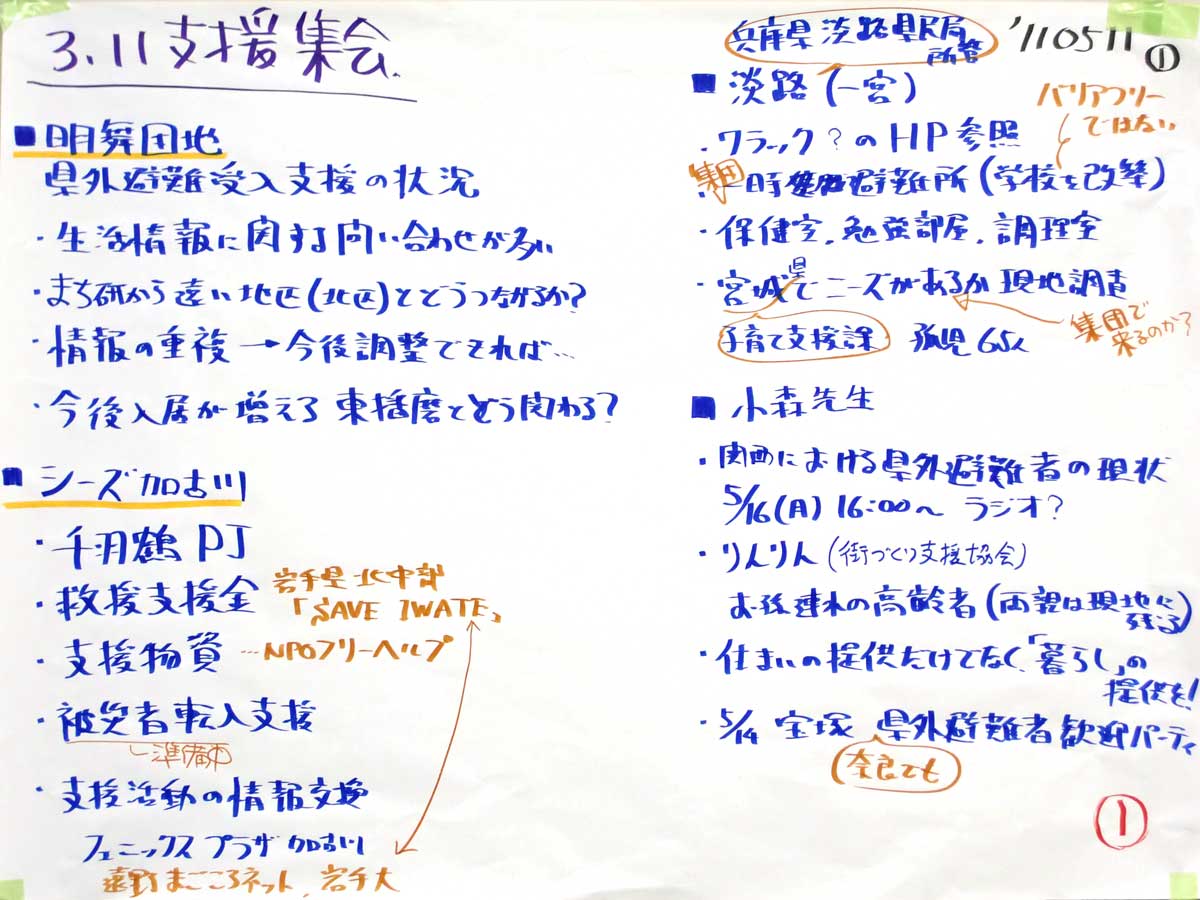 3.11支援集会.
■明舞団地
県外避難受入支援の状況
・生活情報に関する問い合わせが多い
・まち研から遠い地区(北区)とどうつながるか?
・情報の重複→今後調整できれば…
・今後入居が増える 東播磨とどう関わる?
■シーズ加古川
・千羽鶴PJ
・救援支援金
岩手県北中部
「SAVE IWATE」
・支援物資
…NPOフリーヘルプ
・被災者転入支援
準備中
・支援活動の情報交換
フェニックスプラザ加古川
遠野まごころネット、岩手大
兵庫県淡路県民局
所管
'110511
①
■淡路(一宮)
バリアフリー
ではない
・ワラック?のHP参照
集団
・一時避難所(学校を改築)
・保健室、勉強部屋、調理室
・宮城県でニーズがあるか現地調査
集団で
来るのか?
子育て支援課 孤児65人
■小森先生
・関西における県外避難者の現状
5/16(月)16:00〜 ラジオ?
・りんりん(街づくり支援協会)
お孫連れの高齢者(両親は現地に
残る)
・住まいの提供だけでなく、「暮らし」の
提供を!
・5/14 宝塚 県外避難者歓迎パーティ
奈良でも
1